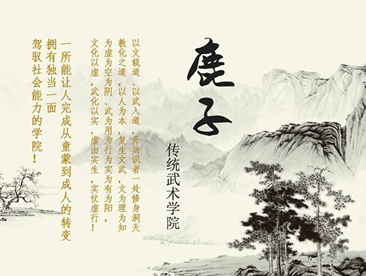 鹿子
传统武术学院
以文载道、以武入道，并共识者一处修身洞天
教化之道，以人为本，复生文武，文为理为知
为虚为空为阴、武为用为行为实为有为阳，
文化以虚，武化以实，虚由实生，实仗虚行！
一所能让人完成从童蒙到成人的转变
拥有独当一面
驾驭社会能力的学院！